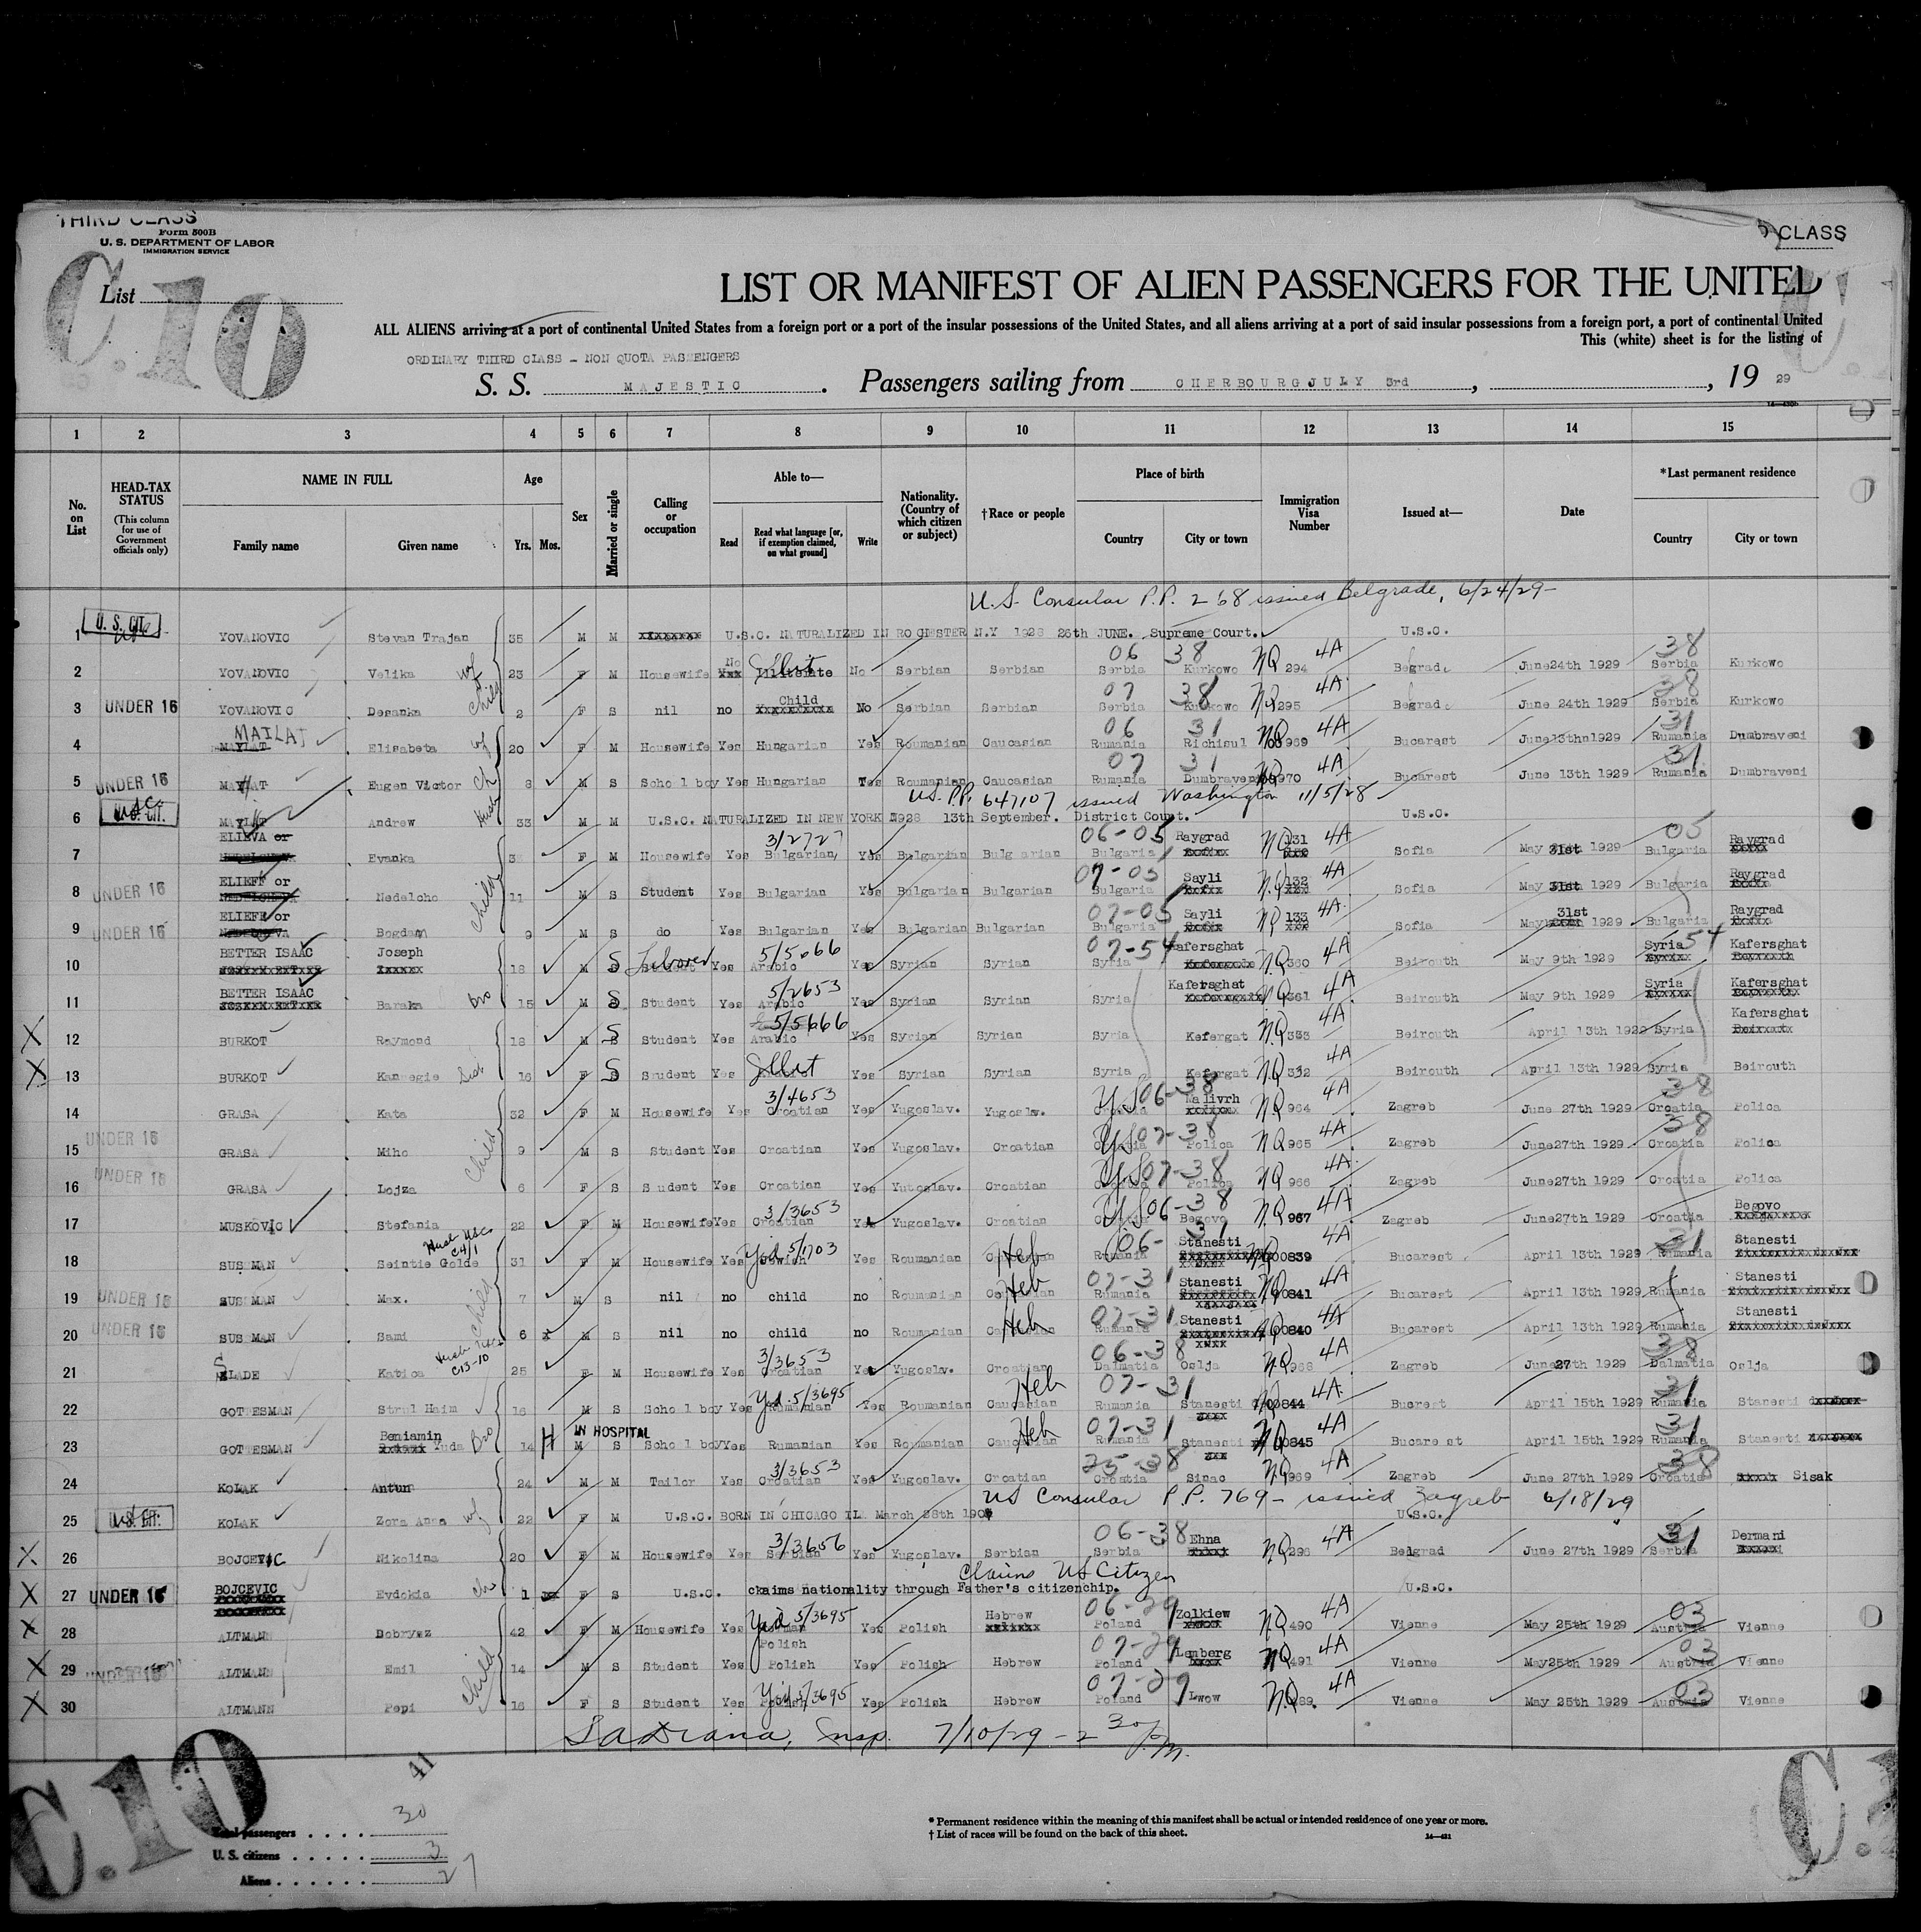 THIRD CLASS
Form 500B
U. S. DEPARTMENT OF LABOR
IMMIGRATION SERVICE
CLASS
C.10
List
LIST OR MANIFEST OF ALIEN PASSENGERS FOR THE UNITED
ALL ALIENS arriving at a port of continental United States from a foreign port or a port of the insular possessions of the United States, and all aliens arriving at a port of said insular possessions from a foreign port, a port of continental United
This (white) sheet is for the listing of
ORDINARY THIRD CLASS - NON QUOTA PASSENGERS
S. S. MAJESTIC. Passengers sailing from CHERBOURG JULY 3rd, , 19 29
1 2 3 4 5 6 7 8 9 10 11 12 13 14 15
No. on List
HEAD-TAX STATUS
(This column for use of Government officials only)
NAME IN FULL
Family name Given name
Age
Yrs. Mos.
Sex
Married or single
Calling or occupation
Able to—
Read
Read what language [or, if exemption claimed, on what ground]
Write
Nationality. (Country of which citizen or subject)
†Race or people
Place of birth
Country City or town
Immigration Visa Number
Issued at—
Date
*Last permanent residence
Country City or town
U.S. Consular P.P. 268 issued Belgrade, 6/24/29-
1 U. S. CIT. YOVANOVIC Stevan Trajan 35 M M U.S.C. NATURALIZED IN ROCHESTER N.Y 1928 26th JUNE. Supreme Court. U.S.C.
2 YOVANOVIC Velika wf 23 F M Housewife No Illiteiate No Serbian Serbian 06 38 Serbia Kurkowo NQ 294 4A Begrade June24th 1929 38 Serbia Kurkowo
3 UNDER 16 YOVANOVIC Desanka Child 2 F S nil no Child No Serbian Serbian 07 38 Serbia Kurkowo NQ 295 4A Begrade June 24th 1929 38 Serbia Kurkowo
4 MAILAT MAYLAT Elisabeta wf 20 F M Housewife Yes Hungarian Yes Roumanian Caucasian 06 31 Rumania Richisul NQ 969 4A Bucarest June13th1929 31 Rumania Dumbraveni
5 UNDER 16 MAYLAT Eugen Victor Ch 8 M S School boy Yes Hungarian Yes Roumanian Caucasian 07 31 Rumania Dumbraveni NQ 970 4A Bucarest June 13th 1929 31 Rumania Dumbraveni
US. P.P. 647107 issued Washington 11/5/28
6 U.S. CIT. MAYLAT Andrew Husb 33 M M U.S.C. NATURALIZED IN NEW YORK 1928 13th September. District Court. U.S.C.
7 ELIEVA or Evanka F M Housewife Yes 3/2727 Bulgarian, Yes Bulgarian Bulgarian 06-05 Bulgaria Raygrad NQ 131 4A Sofia May 31st 1929 05 Bulgaria Raygrad
8 UNDER 16 ELIEFF or Nedelcho Child 11 M S Student Yes Bulgarian Yes Bulgarian Bulgarian 07-05 Bulgaria Sayli NQ 132 4A Sofia May 31st 1929 Bulgaria Raygrad
9 UNDER 16 ELIEFF or Bogdan 9 M S do Yes Bulgarian Yes Bulgarian Bulgarian 07-05 Bulgaria Sayli NQ 133 4A Sofia May 31st 1929 Bulgaria Raygrad
10 BETTER ISAAC Joseph 18 M S Laborer Yes 5/5066 Arabic Yes Syrian Syrian 07-54 Syria Kafersghat NQ 360 4A Beirouth May 9th 1929 Syria 54 Kafersghat
11 BETTER ISAAC Baraka bro 15 M S Student Yes 5/2653 Arabic Yes Syrian Syrian Syria Kafersghat NQ 361 4A Beirouth May 9th 1929 Syria Kafersghat
12 BURKOT Raymond 18 M S Student Yes 5/5666 Arabic Yes Syrian Syrian Syria Kefergat NQ 333 4A Beirouth April 13th 1929 Syria Kafersghat
13 BURKOT Kannegie Sist 16 F S Student Yes Illit Yes Syrian Syrian Syria Kefergat NQ 332 4A Beirouth April 13th 1929 Syria Beirouth
14 GRASA Kata 32 F M Housewife Yes 3/4653 Croatian Yes Yugoslav. Yugoslv. YS 06-38 Malivrh NQ 964 4A Zagreb June 27th 1929 38 Croatia Polica
15 UNDER 16 GRASA Miho Child 9 M S Student Yes Croatian Yes Yugoslav. Croatian YS 07-38 Polica NQ 965 4A Zagreb June27th 1929 38 Croatia Polica
16 UNDER 16 GRASA Lojza 6 F S Student Yes Croatian Yes Yutoslav. Croatian YS 07-38 Polica NQ 966 4A Zagreb June27th 1929 Croatia Polica
17 MUSKOVIC Stefania 22 F M Housewife Yes 3/3653 Croatian Yes Yugoslav. Croatian YS 06-38 Begovo NQ 967 4A Zagreb June27th 1929 Croatia Begovo
18 SUSSMAN Seintie Golde Husb USC C4/1 31 F M Housewife Yes Yid 5/1703 Jewish Yes Roumanian Heb 06-31 Rumania Stanesti NQ 00839 4A Bucarest April 13th 1929 31 Rumania Stanesti
19 UNDER 16 SUSSMAN Max. Child 7 M S nil no child no Roumanian Heb 07-31 Rumania Stanesti NQ 00841 4A Bucarest April 13th 1929 Rumania Stanesti
20 UNDER 16 SUSSMAN Sami 6 M S nil no child no Roumanian Heb 07-31 Rumania Stanesti NQ 00840 4A Bucarest April 13th 1929 Rumania Stanesti
21 SLADE Katica C13-10 25 F M Housewife Yes 3/3653 Croatian Yes Yugoslv. Croatian 06-38 Dalmatia Oslja NQ 968 4A Zagreb June 27th 1929 38 Dalmatia Oslja
22 GOTTESMAN Strul Haim 16 M S School boy Yes Yid. 5/3695 Rumanian Yes Roumanian Caucasian Heb 07-31 Rumania Stanesti NQ 00844 4A Bucrest April 15th 1929 31 Rumania Stanesti
23 GOTTESMAN Beniamin Yuda Bro 14 H IN HOSPITAL M S School boy Yes Rumanian Yes Roumanian Heb 07-31 Rumania Stanesti 00845 4A Bucarest April 15th 1929 31 Rumania Stanesti
24 KOLAK Antun 24 M M Tailor Yes 3/3653 Croatian Yes Yugoslav. Croatian 25-38 Croatia Sinac NQ 969 4A Zagreb June 27th 1929 38 Croatia Sisak
US Consular P.P. 769- issued Zagreb 6/18/29
25 U.S. CIT. KOLAK Zora Anna wf 22 F M U.S.C. BORN IN CHICAGO ILL March 28th 190 U.S.C.
26 BOJCEVIC Nikolina 20 F M Housewife Yes 3/3656 Serbian Yes Yugoslav. Serbian 06-38 Serbia Ehna NQ 296 4A Belgrad June 27th 1929 31 Serbia Dermani
Claims US Citizen
27 UNDER 16 BOJCEVIC Evdokia ch 1 F S U.S.C. claims nationality through Father's citizenchip. U.S.C.
28 ALTMANN Dobrysz 42 F M Housewife Yes Yid 5/3695 Polish Yes Polish Hebrew 06-29 Poland Zolkiew NQ 490 4A Vienne May 25th 1929 03 Austria Vienne
29 UNDER 16 ALTMANN Emil Child 14 M S Student Yes Polish Yes Polish Hebrew 07-29 Poland Lemberg NQ 491 4A Vienne May25th 1929 03 Austria Vienne
30 ALTMANN Pepi 16 F S Student Yes Yid 5/3695 Polish Yes Polish Hebrew 07-29 Poland Lwow NQ 489. 4A Vienne May 25th 1929 03 Austria Vienne
Insp. 7/10/29 - 2 30 P.M.
C.10
41
Total passengers . . . . 30
U. S. citizens . . . . . 3
Aliens . . . . . . 27
* Permanent residence within the meaning of this manifest shall be actual or intended residence of one year or more.
† List of races will be found on the back of this sheet.
14—431